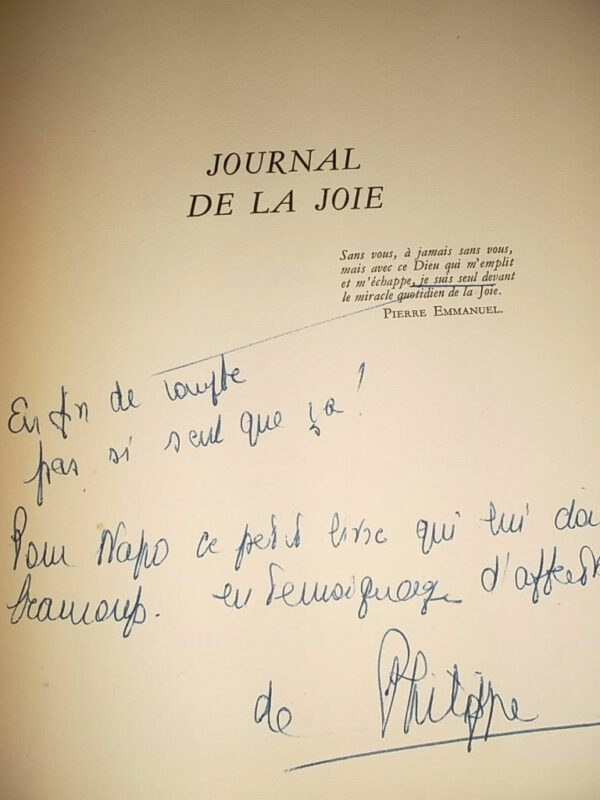 JOURNAL
DE LA JOIE
Sans vous, à jamais sans vous,
mais avec ce Dieu qui m'emplit
et m'échappe, je suis seul devant
le miracle quotidien de la Joie.
PIERRE EMMANUEL.
En fin de compte
pas si seul que ça !
Pour Napo ce petit livre qui lui doi
beaucoup. en témoignage d'affecti
de Philippe